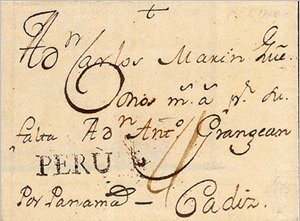 A Dn Carlos Marin que
Dios m.s a.s pr. su
falta A Dn Anto. Grangean
PERÙ
Por Panamá – Cadiz.